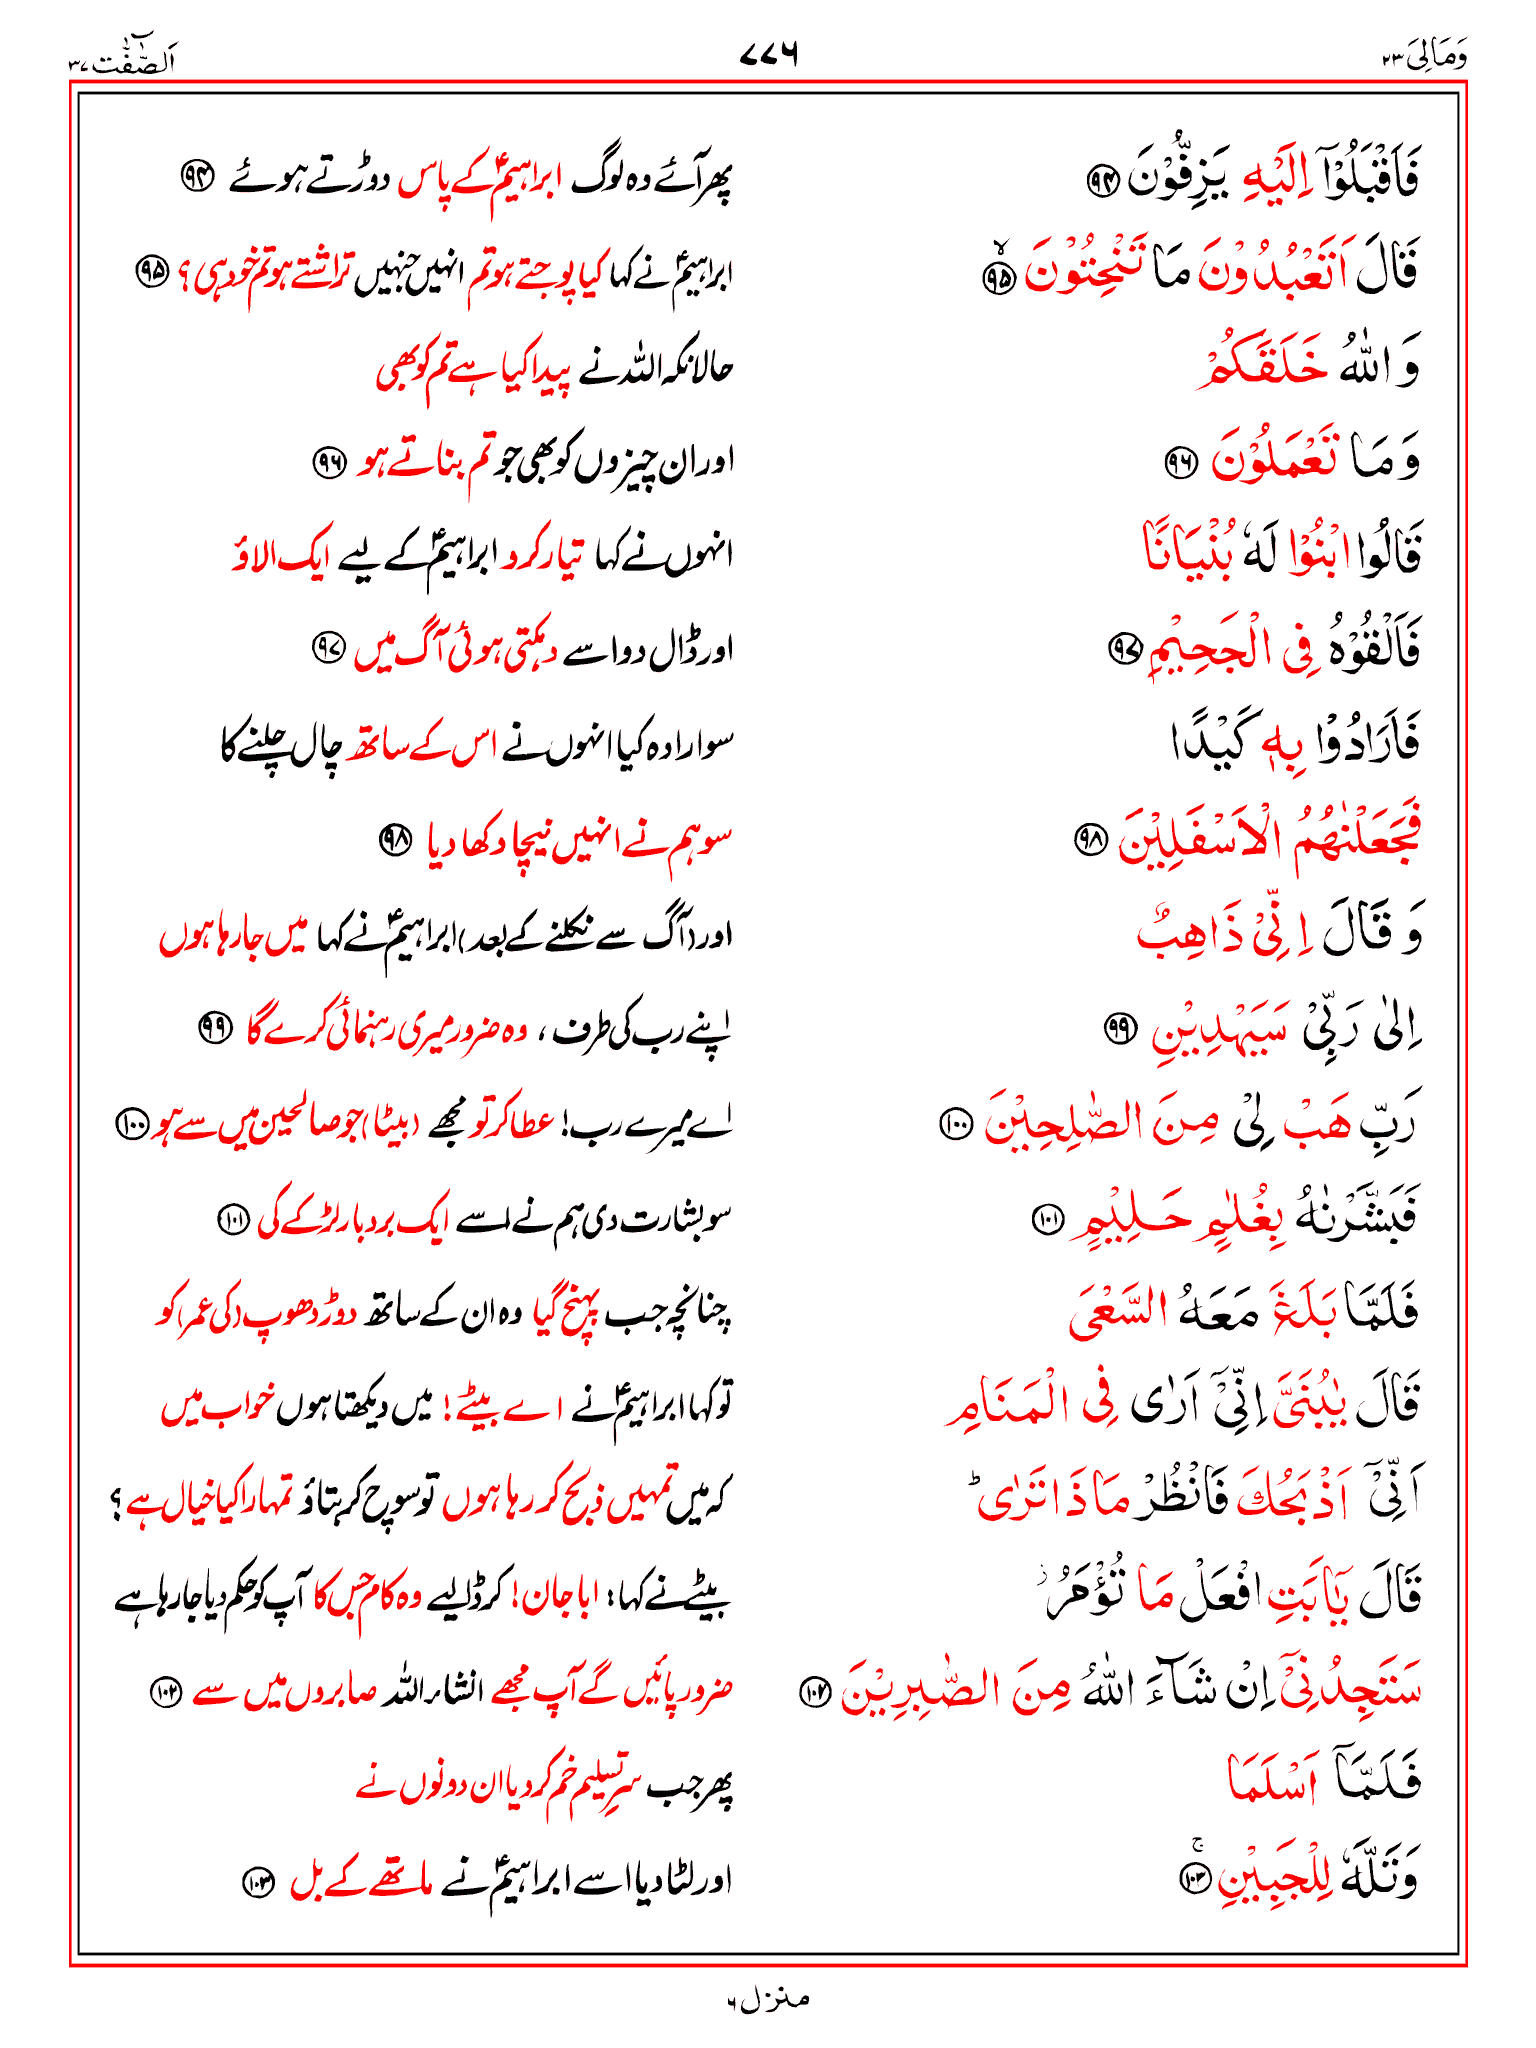 وَمَالِیَ ۲۳ ۷۷۶ اَلصّٰٓفّٰت ۳۷
فَاَقْبَلُوْۤا اِلَیْهِ یَزِفُّوْنَ ۹۴ پھر آئے وہ لوگ ابراہیمؑ کے پاس دوڑتے ہوئے ۹۴
قَالَ اَتَعْبُدُوْنَ مَا تَنْحِتُوْنَ ۙ۹۵ ابراہیمؑ نے کہا کیا پوجتے ہو تم انہیں جنہیں تراشتے ہو تم خود ہی؟ ۹۵
وَ اللّٰهُ خَلَقَكُمْ حالانکہ اللہ نے پیدا کیا ہے تم کو بھی
وَ مَا تَعْمَلُوْنَ ۹۶ اور ان چیزوں کو بھی جو تم بناتے ہو ۹۶
قَالُوا ابْنُوْا لَهٗ بُنْیَانًا انہوں نے کہا تیار کرو ابراہیمؑ کے لیے ایک الاؤ
فَاَلْقُوْهُ فِی الْجَحِیْمِ ۹۷ اور ڈال دو اسے دہکتی ہوئی آگ میں ۹۷
فَاَرَادُوْا بِهٖ كَیْدًا سو ارادہ کیا انہوں نے اس کے ساتھ چال چلنے کا
فَجَعَلْنٰهُمُ الْاَسْفَلِیْنَ ۹۸ سو ہم نے انہیں نیچا دکھا دیا ۹۸
وَ قَالَ اِنِّیْ ذَاهِبٌ اور (آگ سے نکلنے کے بعد) ابراہیمؑ نے کہا میں جا رہا ہوں
اِلٰی رَبِّیْ سَیَهْدِیْنِ ۹۹ اپنے رب کی طرف، وہ ضرور میری رہنمائی کرے گا ۹۹
رَبِّ هَبْ لِیْ مِنَ الصّٰلِحِیْنَ ۱۰۰ اے میرے رب! عطا کر تو مجھے (بیٹا) جو صالحین میں سے ہو ۱۰۰
فَبَشَّرْنٰهُ بِغُلٰمٍ حَلِیْمٍ ۱۰۱ سو بشارت دی ہم نے اسے ایک بردبار لڑکے کی ۱۰۱
فَلَمَّا بَلَغَ مَعَهُ السَّعْیَ چنانچہ جب پہنچ گیا وہ ان کے ساتھ دوڑ دھوپ (کی عمر) کو
قَالَ یٰبُنَیَّ اِنِّیْۤ اَرٰی فِی الْمَنَامِ تو کہا ابراہیمؑ نے اے بیٹے! میں دیکھتا ہوں خواب میں
اَنِّیْۤ اَذْبَحُكَ فَانْظُرْ مَاذَا تَرٰی ؕ کہ میں تمہیں ذبح کر رہا ہوں تو سوچ کر بتاؤ تمہارا کیا خیال ہے؟
قَالَ یٰۤاَبَتِ افْعَلْ مَا تُؤْمَرُ ؗ بیٹے نے کہا: ابا جان! کر ڈالیے وہ کام جس کا آپ کو حکم دیا جا رہا ہے
سَتَجِدُنِیْۤ اِنْ شَآءَ اللّٰهُ مِنَ الصّٰبِرِیْنَ ۱۰۲ ضرور پائیں گے آپ مجھے انشاء اللہ صابروں میں سے ۱۰۲
فَلَمَّاۤ اَسْلَمَا پھر جب سرِ تسلیم خم کر دیا ان دونوں نے
وَتَلَّهٗ لِلْجَبِیْنِ ۚ۱۰۳ اور لٹا دیا اسے ابراہیمؑ نے ماتھے کے بل ۱۰۳
منزل ۶